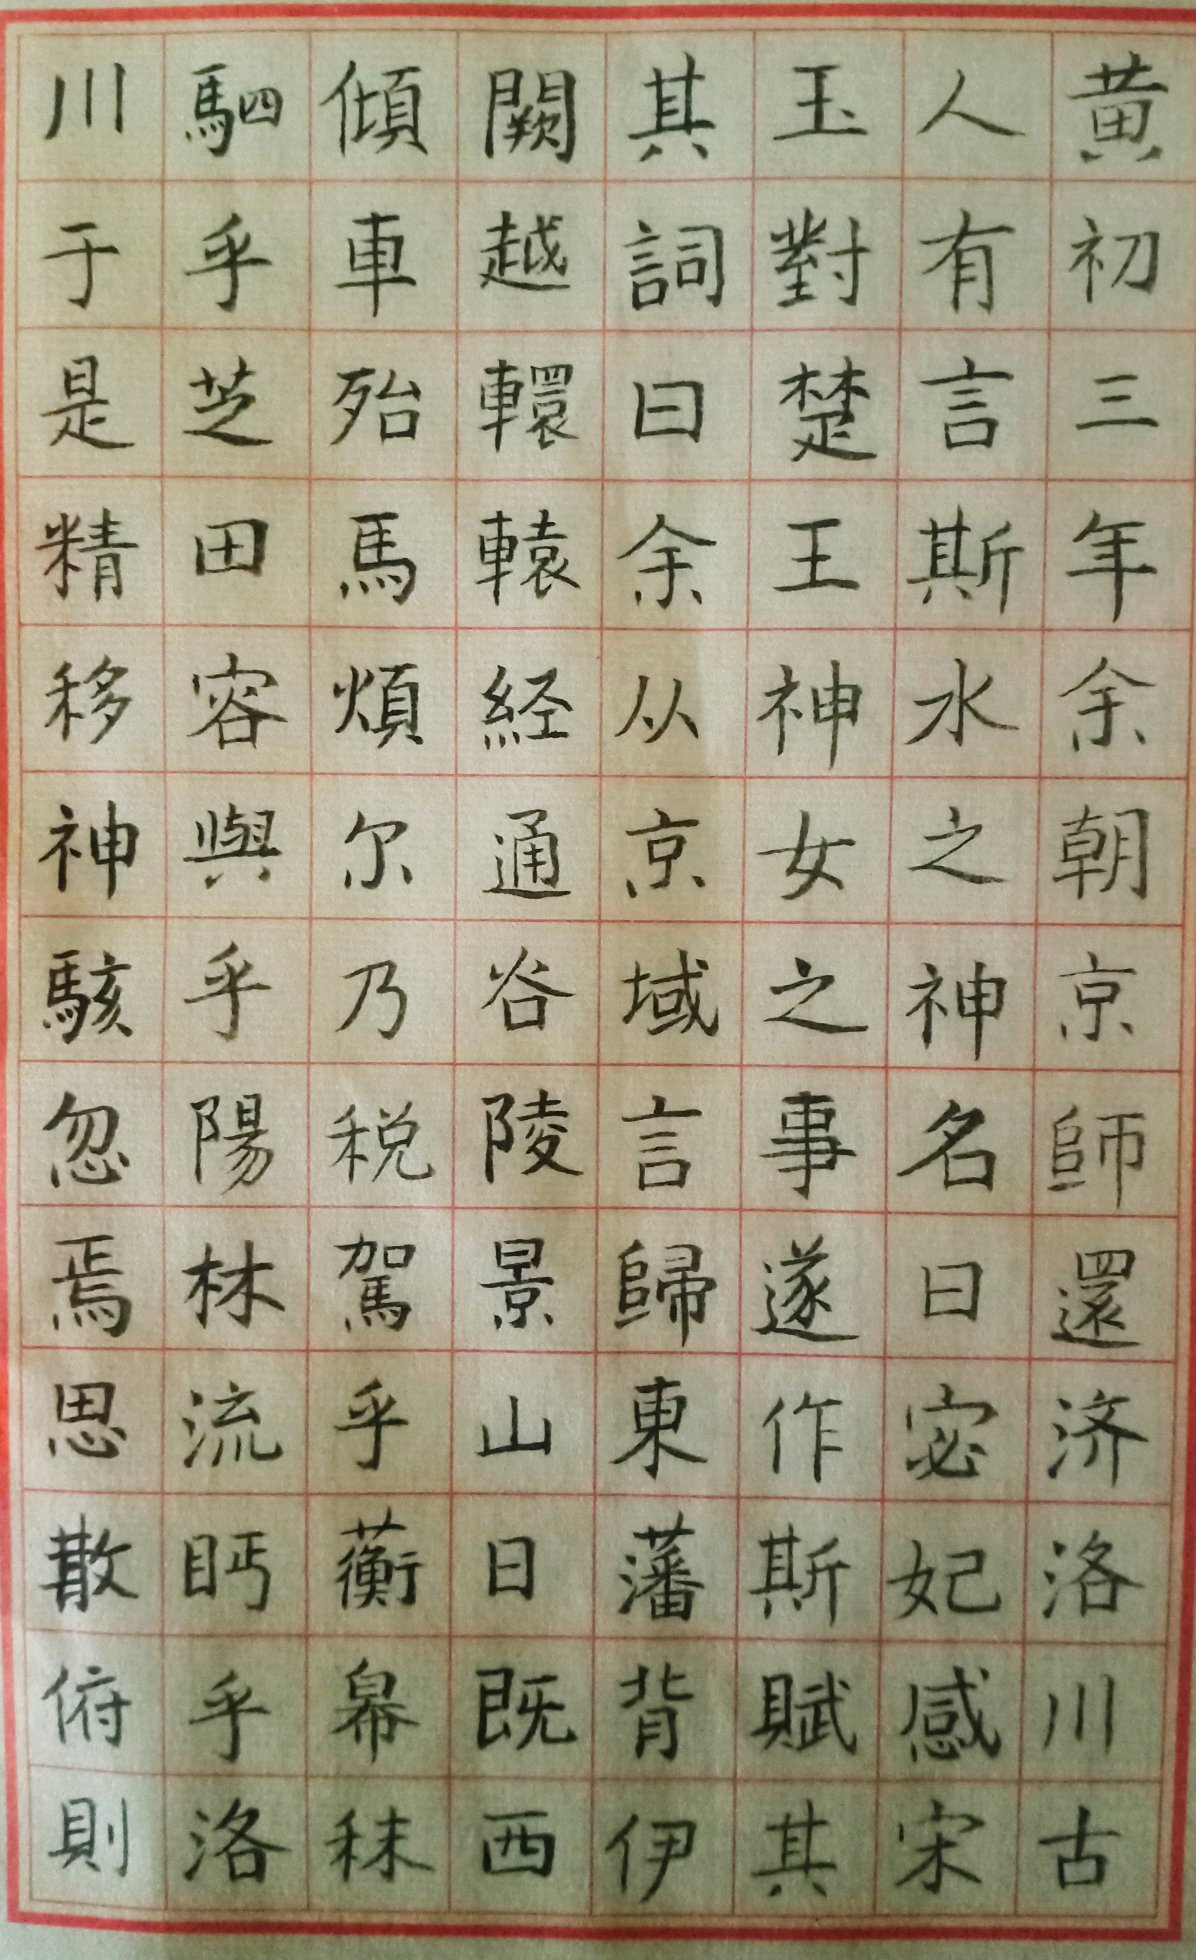 黄初三年余朝京師還济洛川古
人有言斯水之神名曰宓妃感宋
玉對楚王神女之事遂作斯賦其
其詞曰余从京域言歸東藩背伊
闕越轘轅経通谷陵景山日既西
傾車殆馬煩尔乃税駕乎蘅皋秣
駟乎芝田容與乎陽林流眄乎洛
川于是精移神駭忽焉思散俯則